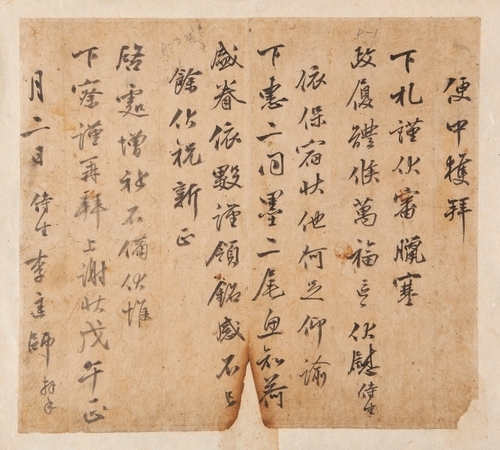 便中獲拜
下札謹伏審臘寒
政履體候萬福三伏慰侍生
依保宿狀他何足仰諭
下惠二同墨二尾魚知荷
盛眷依斅謹領銘感不
餘伏祝新正
啓處增祉不備伏惟
下察謹再拜上謝狀戊午正
月二日侍生李 師拜手